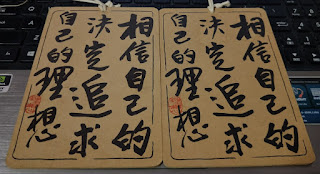 相信自己的
決定追求
自己的理想
相信自己的
決定追求
自己的理想